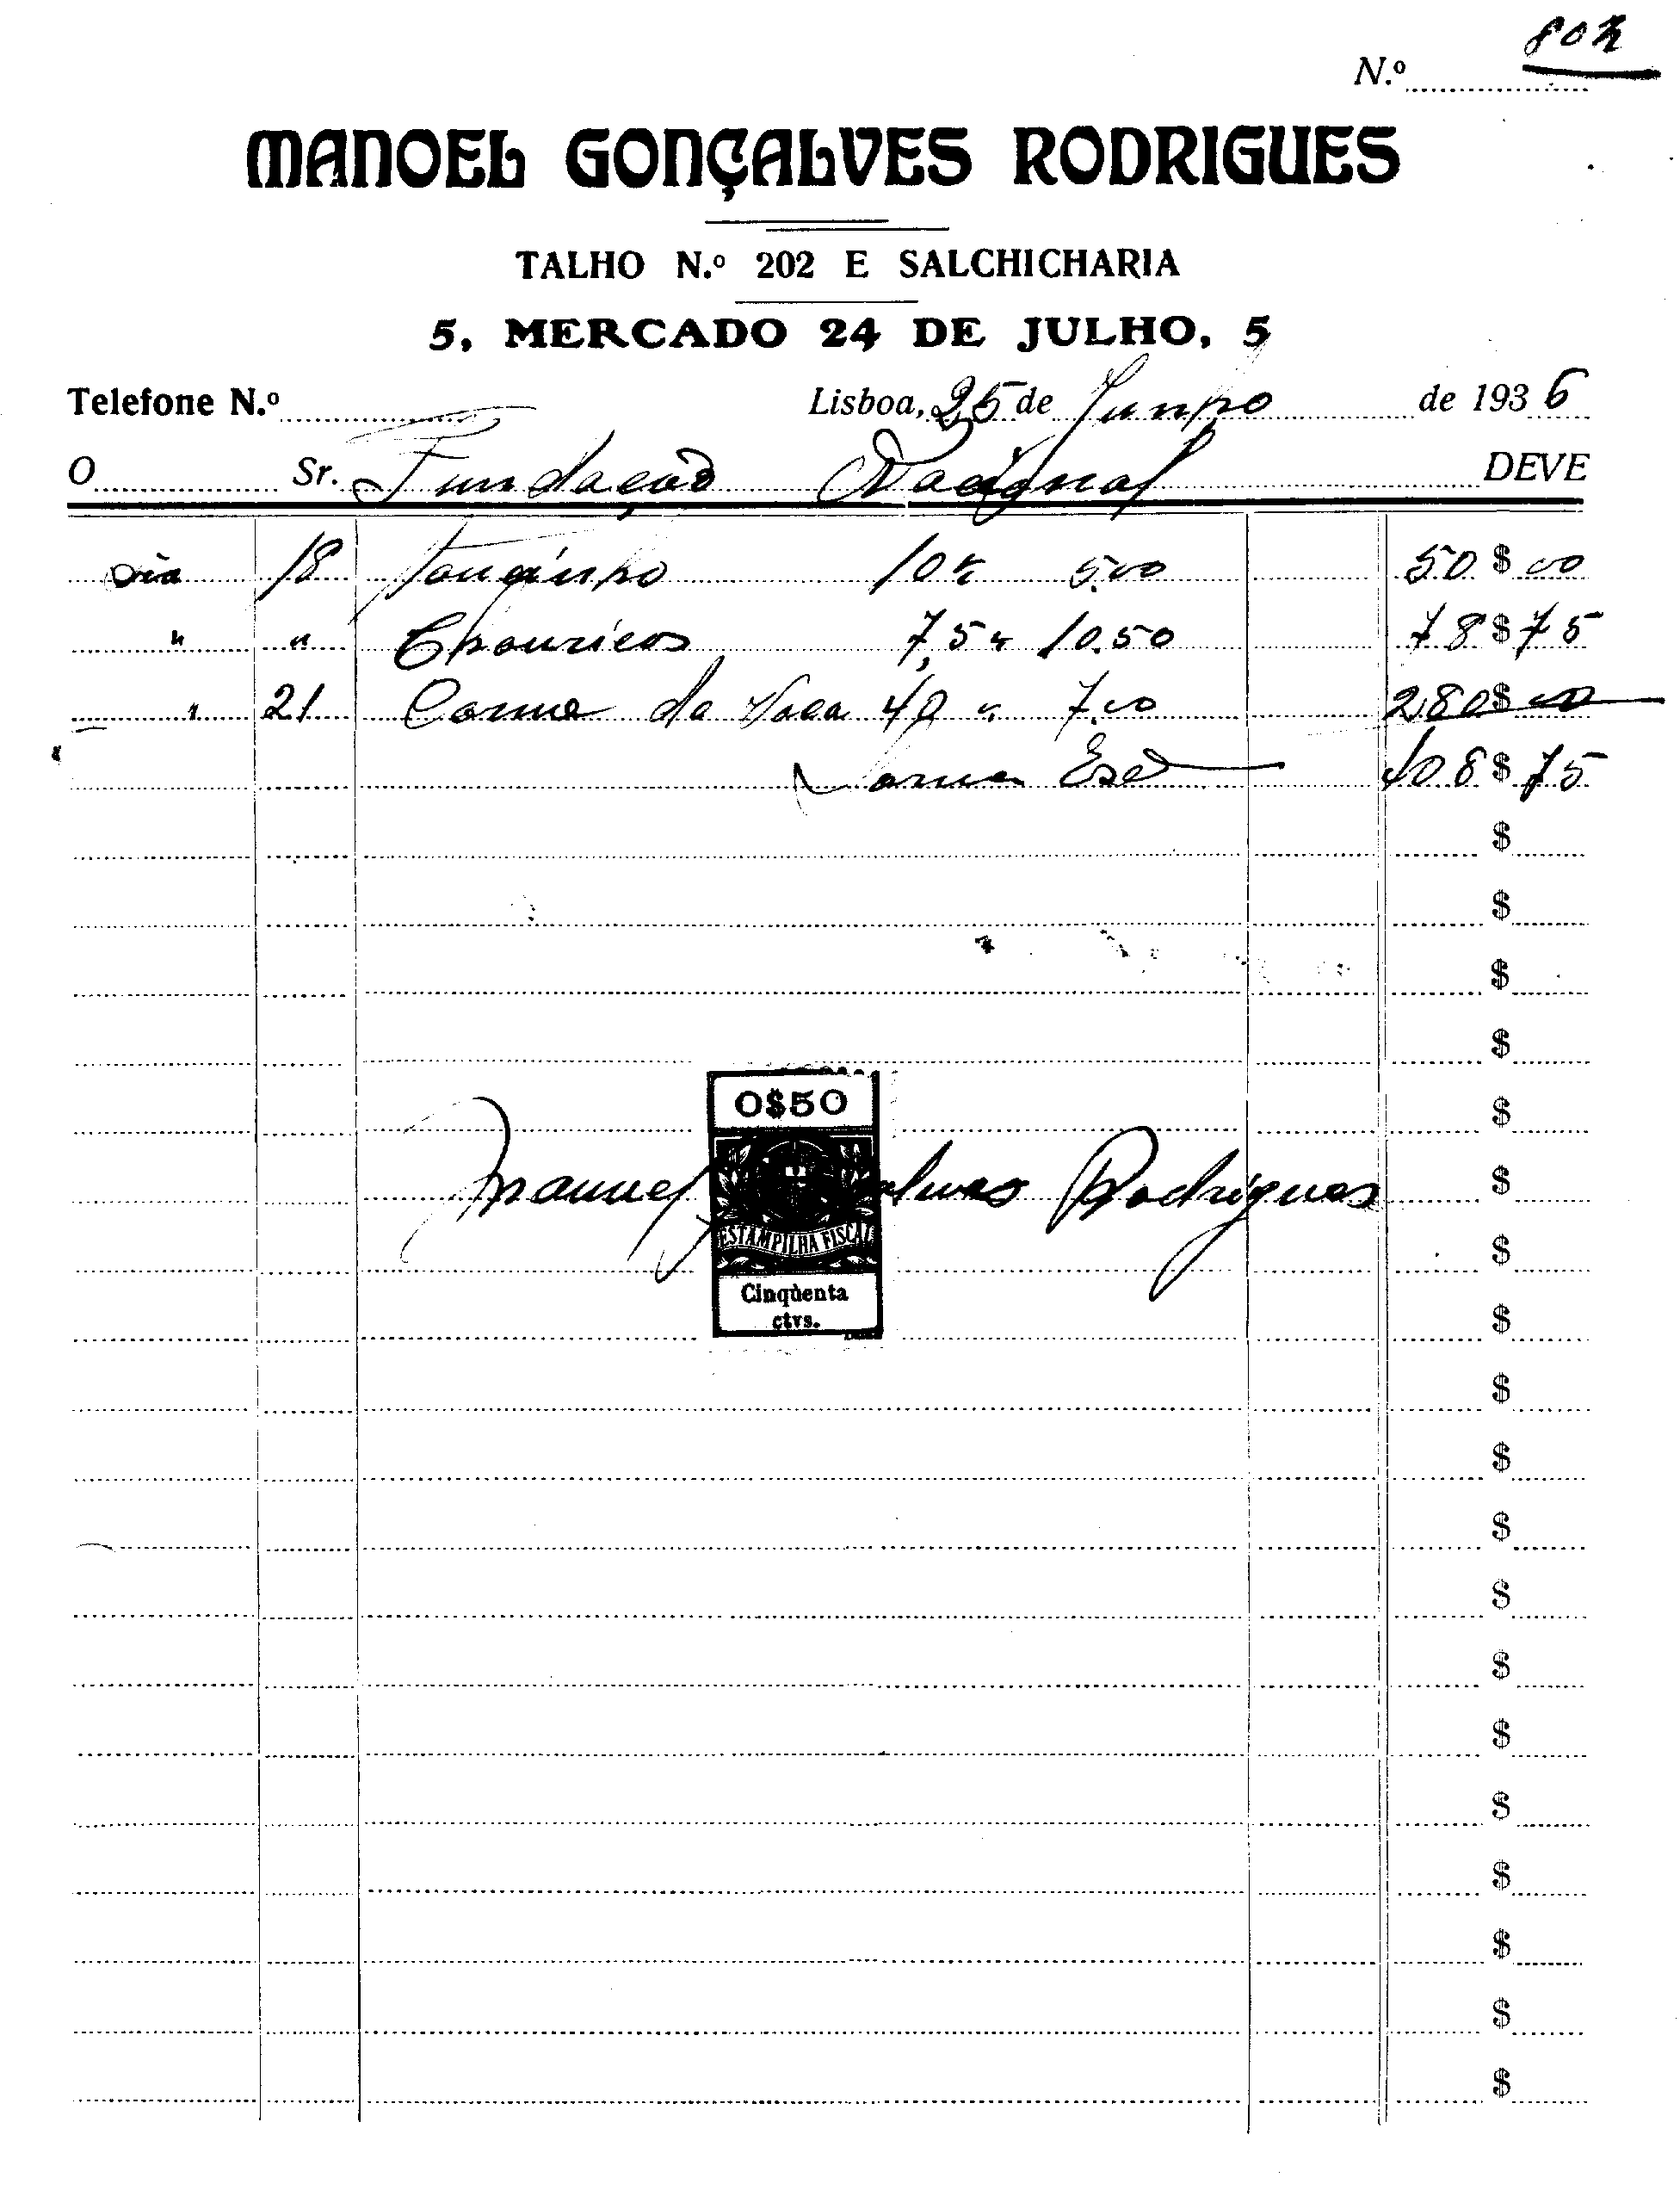 N.º 802
MANOEL GONÇALVES RODRIGUES
TALHO N.º 202 E SALCHICHARIA
5, MERCADO 24 DE JULHO, 5
Telefone N.º Lisboa, 25 de Junho de 1936
O Sr. Fundação Nacional DEVE
Dia 18 Toucinho 10 k 5.00 50$00
" " Chouricos 7,5 " 10.50 78$75
" 21 Carne de Vaca 40 " 7.00 280$00
Soma Esc 408$75
$
$
$
$
$
0$50
Manuel alves Rodrigues $
ESTAMPILHA FISCAL $
Cinqüenta
ctvs. $
$
$
$
$
$
$
$
$
$
$
$